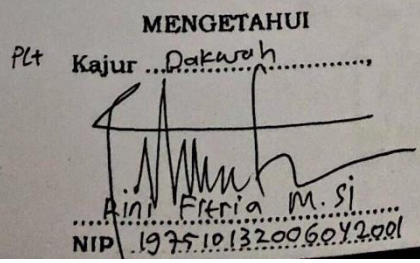 MENGETAHUI
Plt Kajur Dakwah,
Rini Fitria M.Si
NIP 197510132006042001